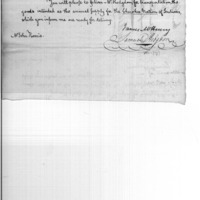 You will please to deliver Mr. Hodgdon for transportation, the
goods intended as the annual supply for the Cherokee Nation of Indians,
which you inform me are ready for delivery
James McHenry
Mr. John Harris
Samuel Hodgdon